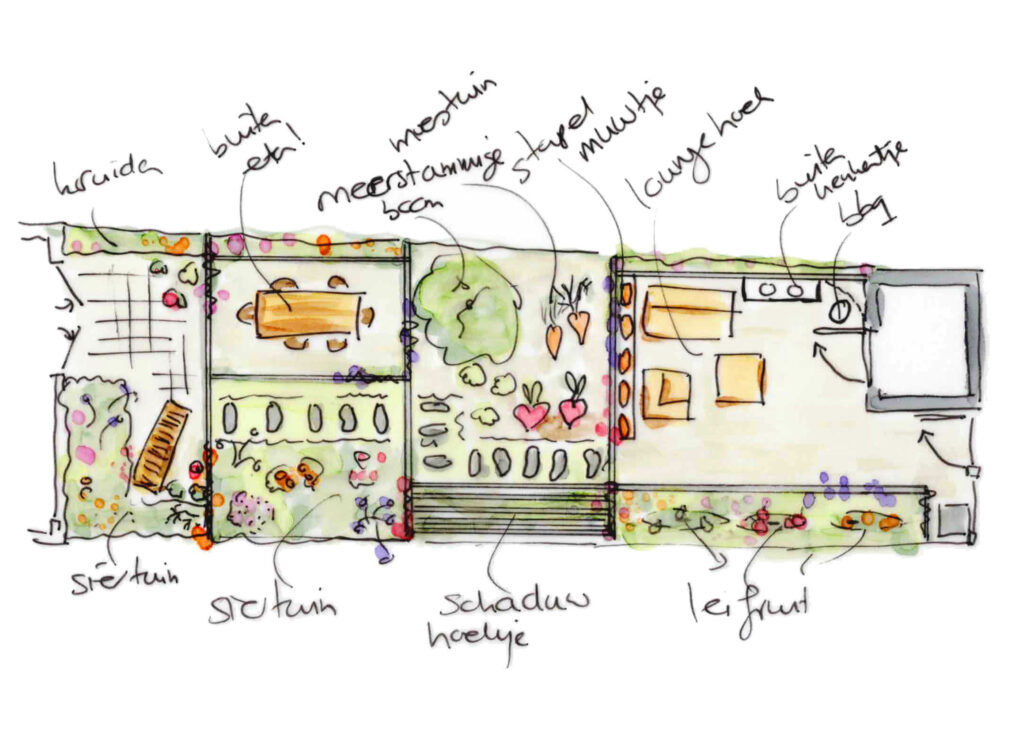 kruiden
buiten
eten!
moestuin
meerstammige
boom
stapel
muurtje
lounge hoek
buiten
keukentje
bbq
siertuin
siertuin
schaduw
hoekje
leifruit